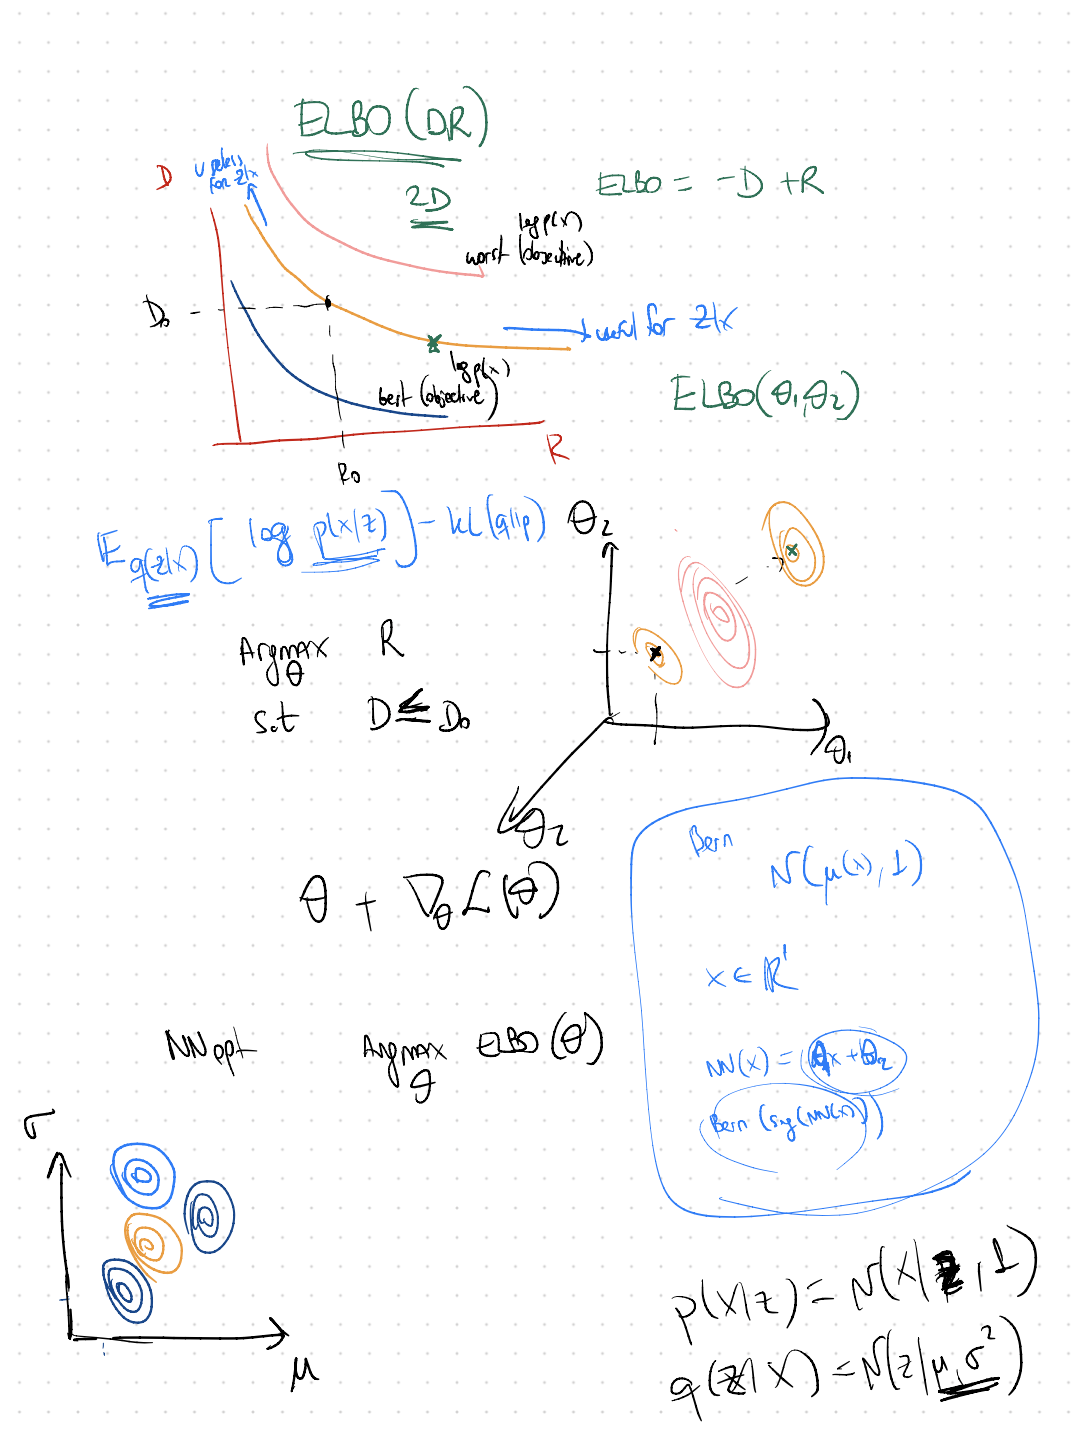 ELBO (DR)
2D
ELBO = -D + R
D
useless
for z|x
log p(x)
worst (objective)
D₀
useful for z|x
log p(x)
best (objective)
ELBO(θ₁, θ₂)
R
R₀
E_q(z|x) [ log p(x|z) ] - KL(q||p)
θ₂
Argmax R
θ
s.t D ≤ D₀
θ₁
θ₂
θ + ∇_θ L(θ)
Bern
N(μ(x), 1)
x ∈ ℝ¹
NN opt
Argmax ELBO(θ)
θ
NN(x) = θ₁x + θ₂
Bern (sig(NN(x)))
σ
μ
p(x|z) = N(x|z, 1)
q(z|x) = N(z|μ, σ²)